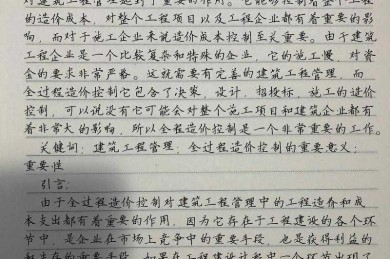 对建筑工程管理起到了重要的作用。它能够控制着整个工程
的造价成本,对整个工程项目以及工程企业都有着重要的影
响,而对于施工企业来说造价成本控制至关重要。由于建筑
工程企业是一个比较复杂和特殊的企业,它的施工慢,对资
金的要求非常严格。这就需要有完善的建筑工程管理,而
全过程造价控制它包含了决策,设计,招投标,施工的造价
控制,可以说没有它可能会对整个施工项目和建筑企业都有
着非常大的影响,所以全程造价控制是一个非常重要的工作。
关键词:建筑工程管理;全过程造价控制的重要意义;
重要性
引言:
由于全过程造价控制对建筑工程管理中的工程造价和成
本支出都有着重要的作用,因为它存在于工程建设的各个环
节中,是企业在市场上竞争中的重要手段,也是获得利益的
和主存的重要手段,如果在工程建设过程中一个环节出现了